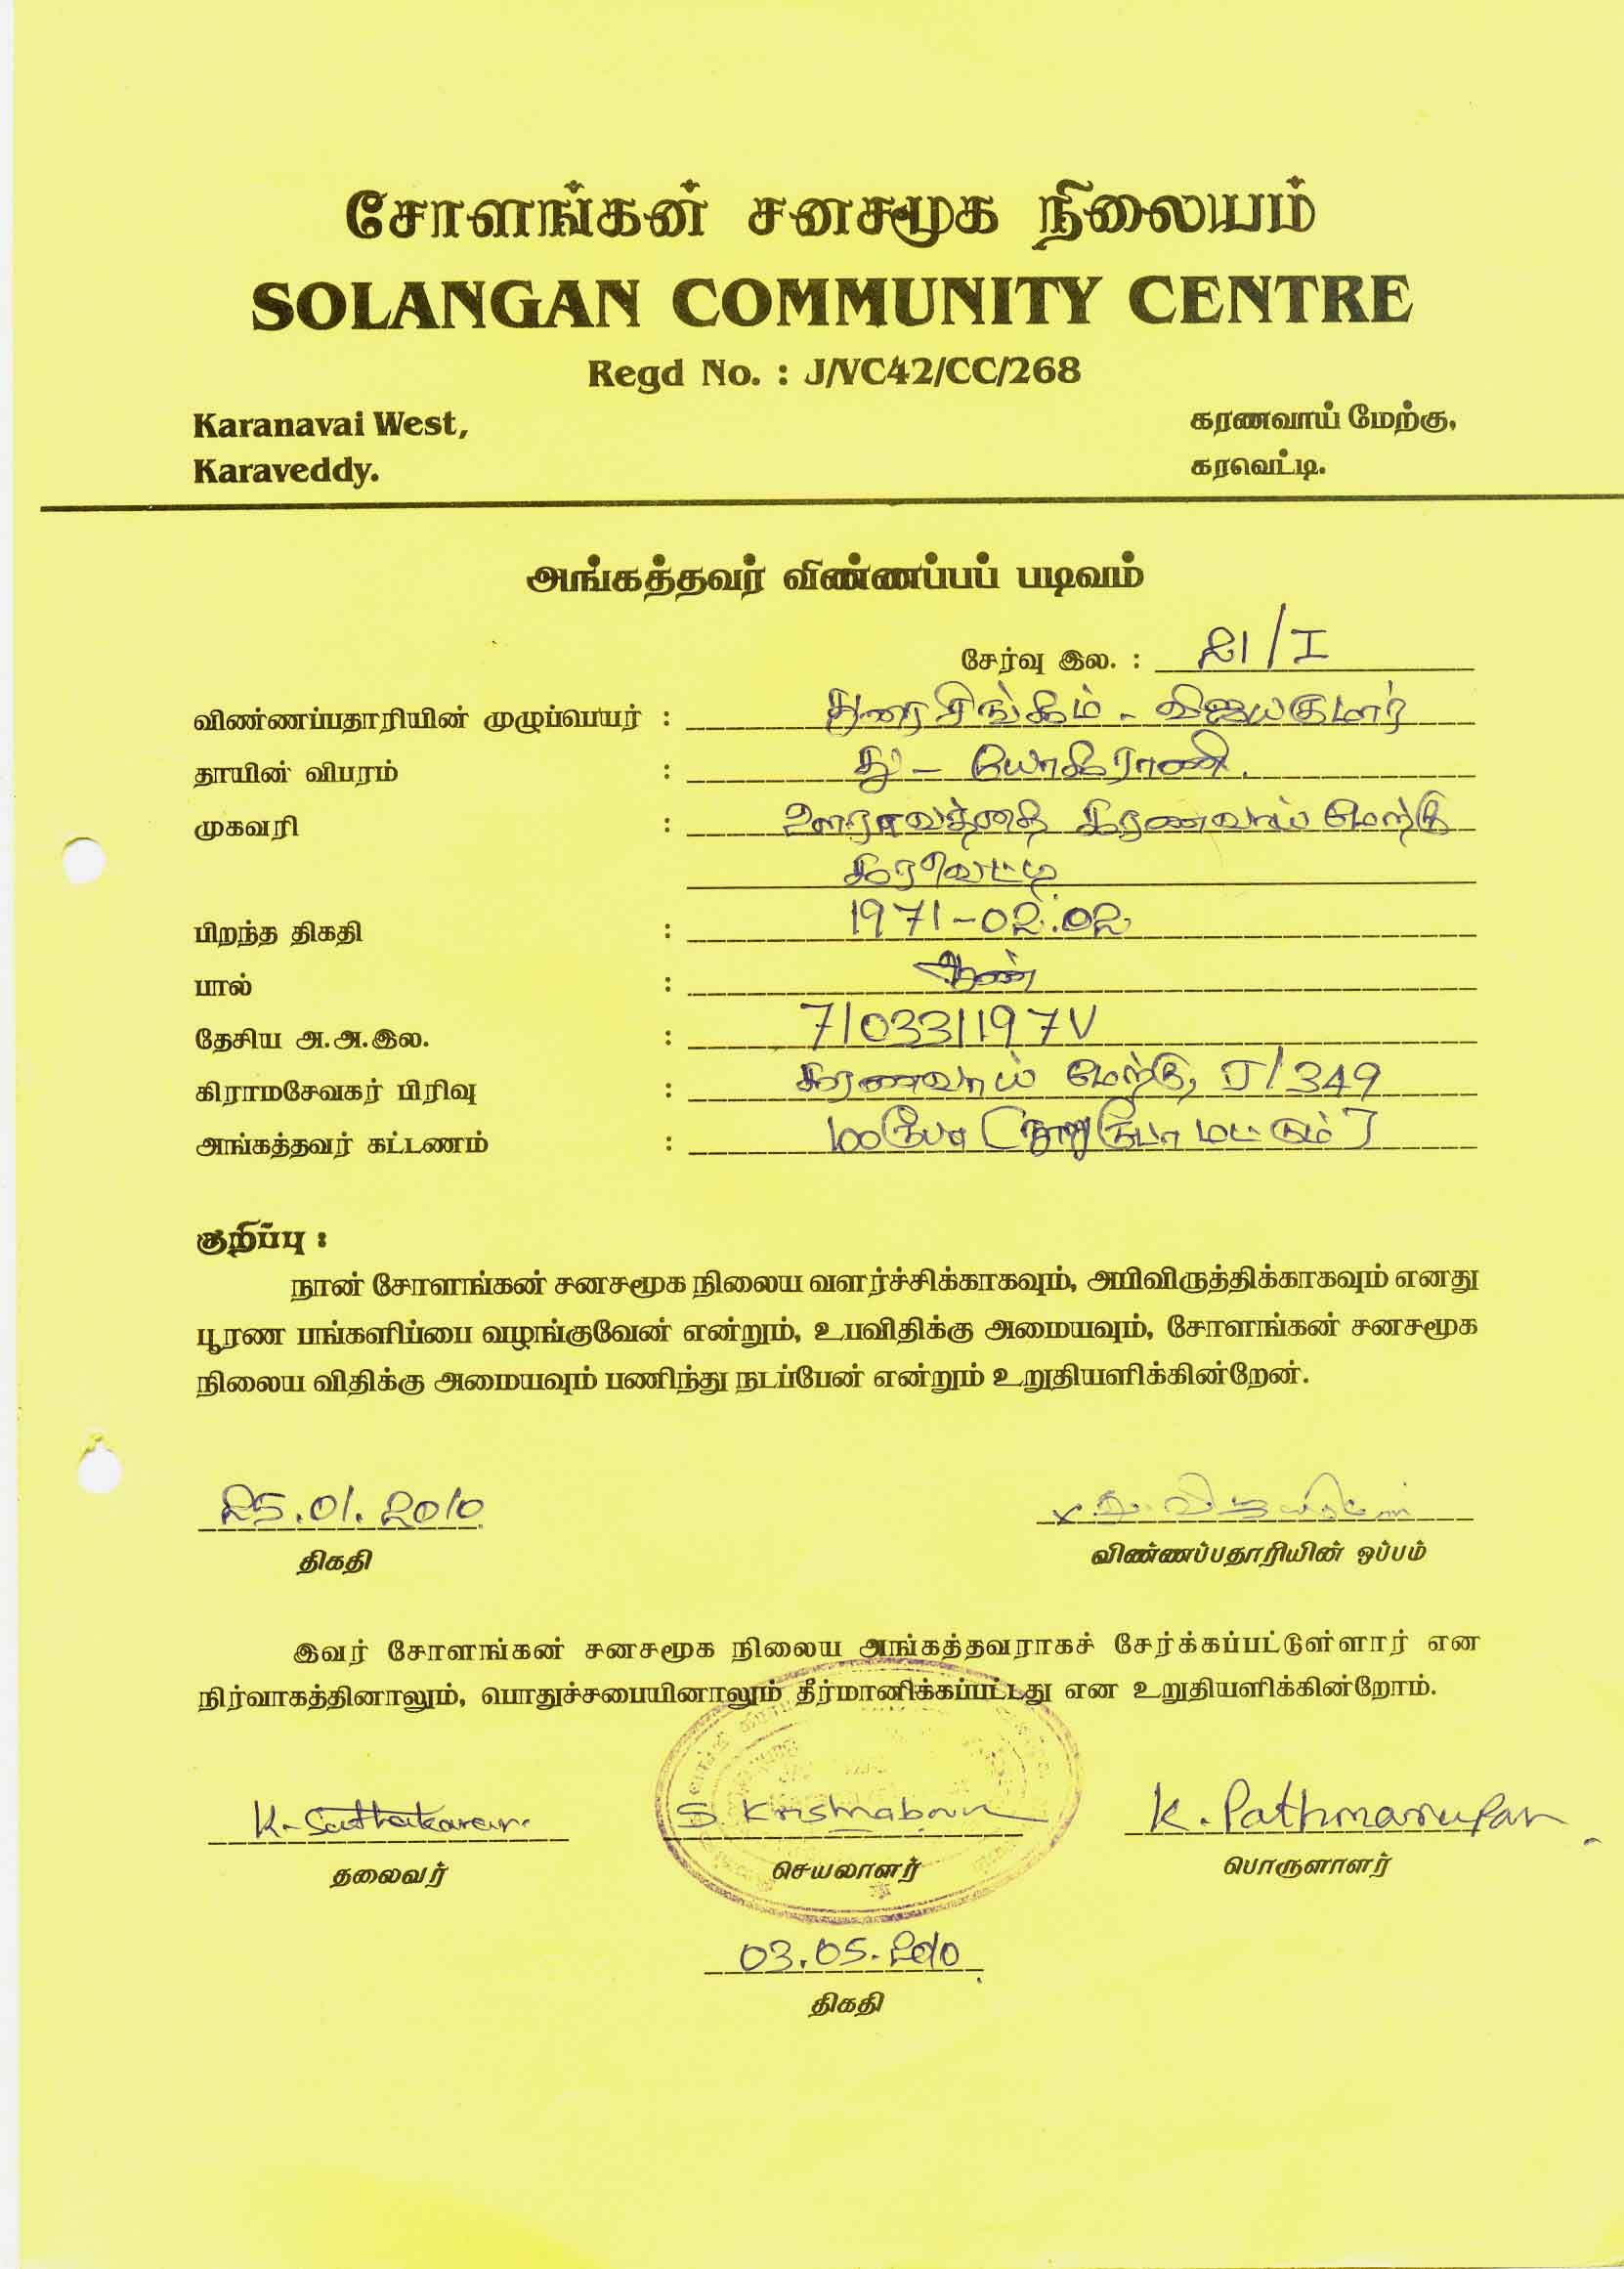 சோளங்கன் சனசமூக நிலையம்
SOLANGAN COMMUNITY CENTRE
Regd No. : J/VC42/CC/268
Karanavai West, கரணவாய் மேற்கு,
Karaveddy. கரவெட்டி.
அங்கத்தவர் விண்ணப்பப் படிவம்
சேர்வு இல. : 21/I
விண்ணப்பதாரியின் முழுப்பெயர் : துரைசிங்கம் - விஜயகுமார்
தாயின் விபரம் : து - யோகராணி.
முகவரி : கரணவாய் மேற்கு
கரவெட்டி
பிறந்த திகதி : 1971-02.02
பால் : ஆண்
தேசிய அ.அ.இல. : 710331197V
கிராமசேவகர் பிரிவு : கரணவாய் மேற்கு, J/349
அங்கத்தவர் கட்டணம் : 100ரூபா [நூறு ரூபா மட்டும்]
குறிப்பு :
நான் சோளங்கன் சனசமூக நிலைய வளர்ச்சிக்காகவும், அபிவிருத்திக்காகவும் எனது
பூரண பங்களிப்பை வழங்குவேன் என்றும், உபவிதிக்கு அமையவும், சோளங்கன் சனசமூக
நிலைய விதிக்கு அமையவும் பணிந்து நடப்பேன் என்றும் உறுதியளிக்கின்றேன்.
25.01.2010 x து. விஜயகுமார்
திகதி விண்ணப்பதாரியின் ஒப்பம்
இவர் சோளங்கன் சனசமூக நிலைய அங்கத்தவராகச் சேர்க்கப்பட்டுள்ளார் என
நிர்வாகத்தினாலும், பொதுச்சபையினாலும் தீர்மானிக்கப்பட்டது என உறுதியளிக்கின்றோம்.
K. Suthakaran S. K. Pathmarupan
தலைவர் செயலாளர் பொருளாளர்
03.05.2010
திகதி